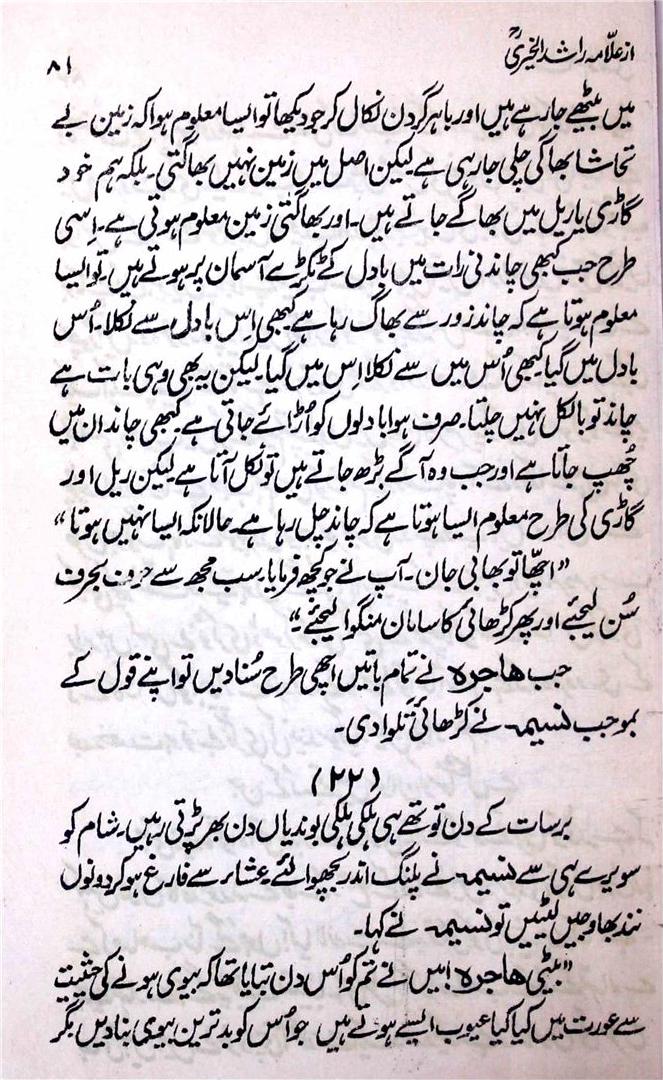 از علّامہ راشد الخیریؒ
۸۱
میں بیٹھے جا رہے ہیں اور باہر گردن نکال کر جو دیکھا تو ایسا معلوم ہوا کہ زمین بے
تحاشا بھاگی چلی جا رہی ہے۔ لیکن اصل میں زمین نہیں بھاگتی۔ بلکہ ہم خود
گاڑی یا ریل میں بھاگے جاتے ہیں۔ اور بھاگتی زمین معلوم ہوتی ہے۔ اِسی
طرح جب کبھی چاندنی رات میں بادل کے ٹکڑے آسمان پر ہوتے ہیں۔ تو ایسا
معلوم ہوتا ہے کہ چاند زور سے بھاگ رہا ہے کبھی اِس بادل سے نکلا۔ اُس
بادل میں گیا کبھی اُس میں سے نکلا اِس میں گیا۔ لیکن یہ بھی وہی بات ہے
چاند تو بالکل نہیں چلتا۔ صرف ہوا بادلوں کو اُڑائے جاتی ہے۔ کبھی چاند ان میں
چُھپ جاتا ہے اور جب وہ آگے بڑھ جاتے ہیں تو نکل آتا ہے۔ لیکن ریل اور
گاڑی کی طرح معلوم ایسا ہوتا ہے کہ چاند چل رہا ہے۔ حالانکہ ایسا نہیں ہوتا“
”اچھّا تو بھابی جان۔ آپ نے جو کچھ فرمایا۔ سب مجھ سے حرف بحرف
سُن لیجئے اور پھر کڑھائی کا سامان منگوا لیجئے۔“
جب ھاجرہ نے تمام باتیں اچھی طرح سُنا دیں تو اپنے قول کے
بموجب نسیمہ نے کڑھائی تلوا دی۔
(۲۲)
برسات کے دن تو تھے ہی ہلکی ہلکی بوندیاں دن بھر پڑتی رہیں۔ شام کو
سویرے ہی سے نسیمہ نے پلنگ اندر بچھوا لئے۔ عشاء سے فارغ ہو کر دونوں
نند بھاوجیں لیٹیں تو نسیمہ نے کہا۔
”بیٹی ھاجرہ! میں نے تم کو اُس دن بتایا تھا کہ بیوی ہونے کی حیثیت
سے عورت میں کیا کیا عیوب ایسے ہوتے ہیں جو اُس کو بدترین بیوی بنا دیں مگر